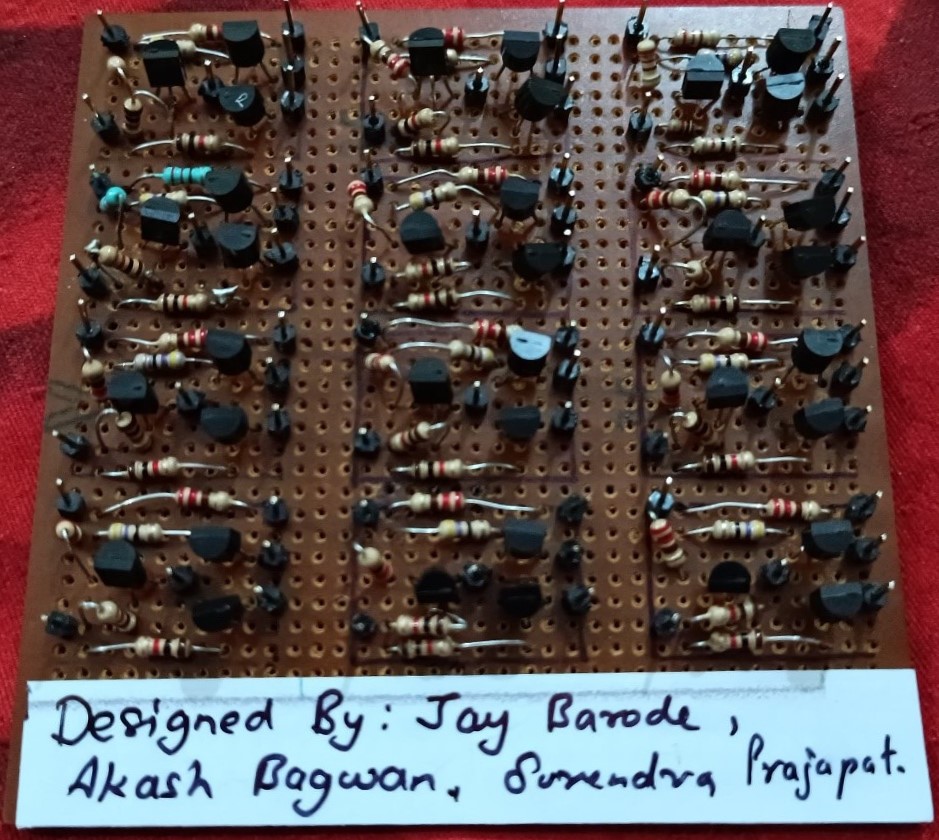 Designed By: Jay Barode,
Akash Bagwan, Surendra Prajapat.